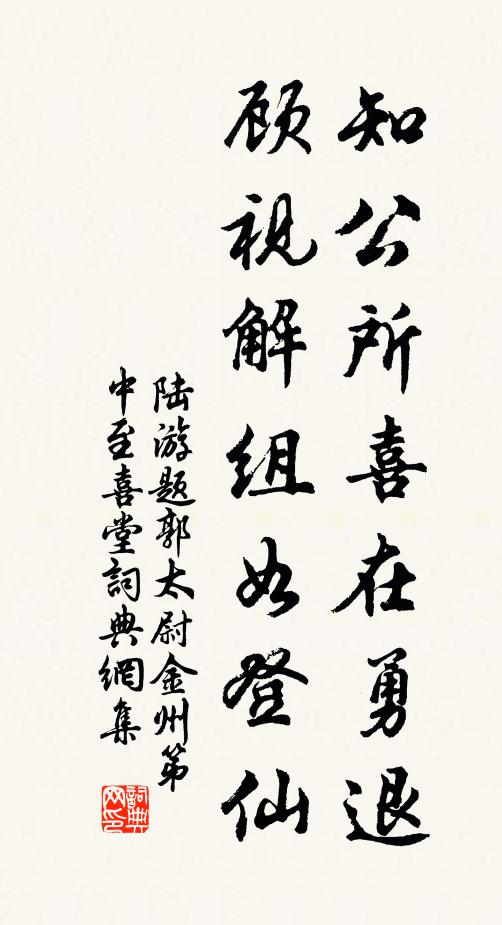 知公所喜在勇退
顾视解组如登仙
陆游题郭太尉金州第
中至喜堂詞典網集
詞典
网印